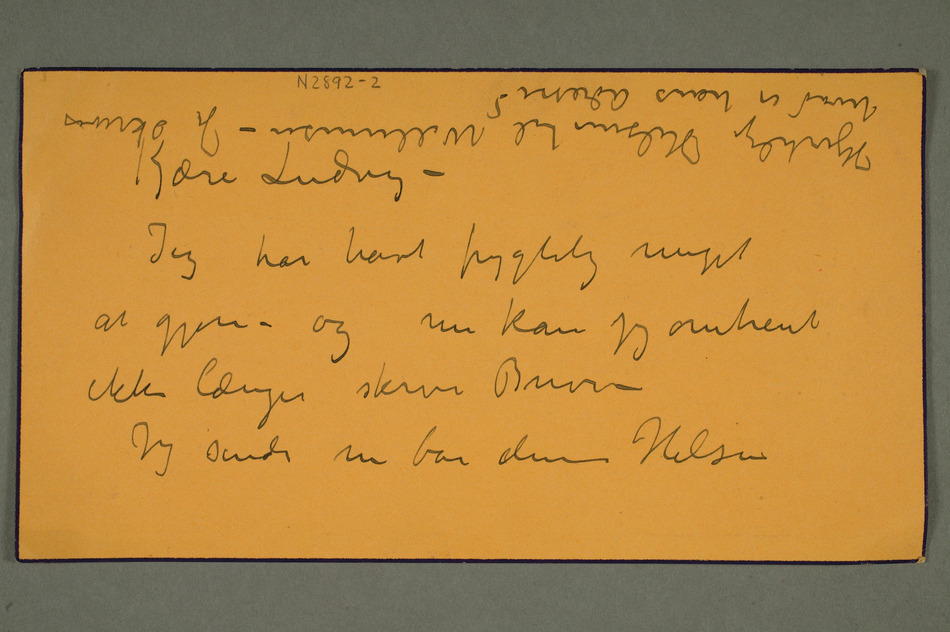 N2892-2
Kjære Ludvig –
Jeg har havt frygtelig meget
at gjøre – og nu kan jeg omtrent
ikke længer skrive Breve –
Jeg sender nu bare denne Hilsen
Hjertelige Hilsener til Willumsen –
hvad er hans adresse